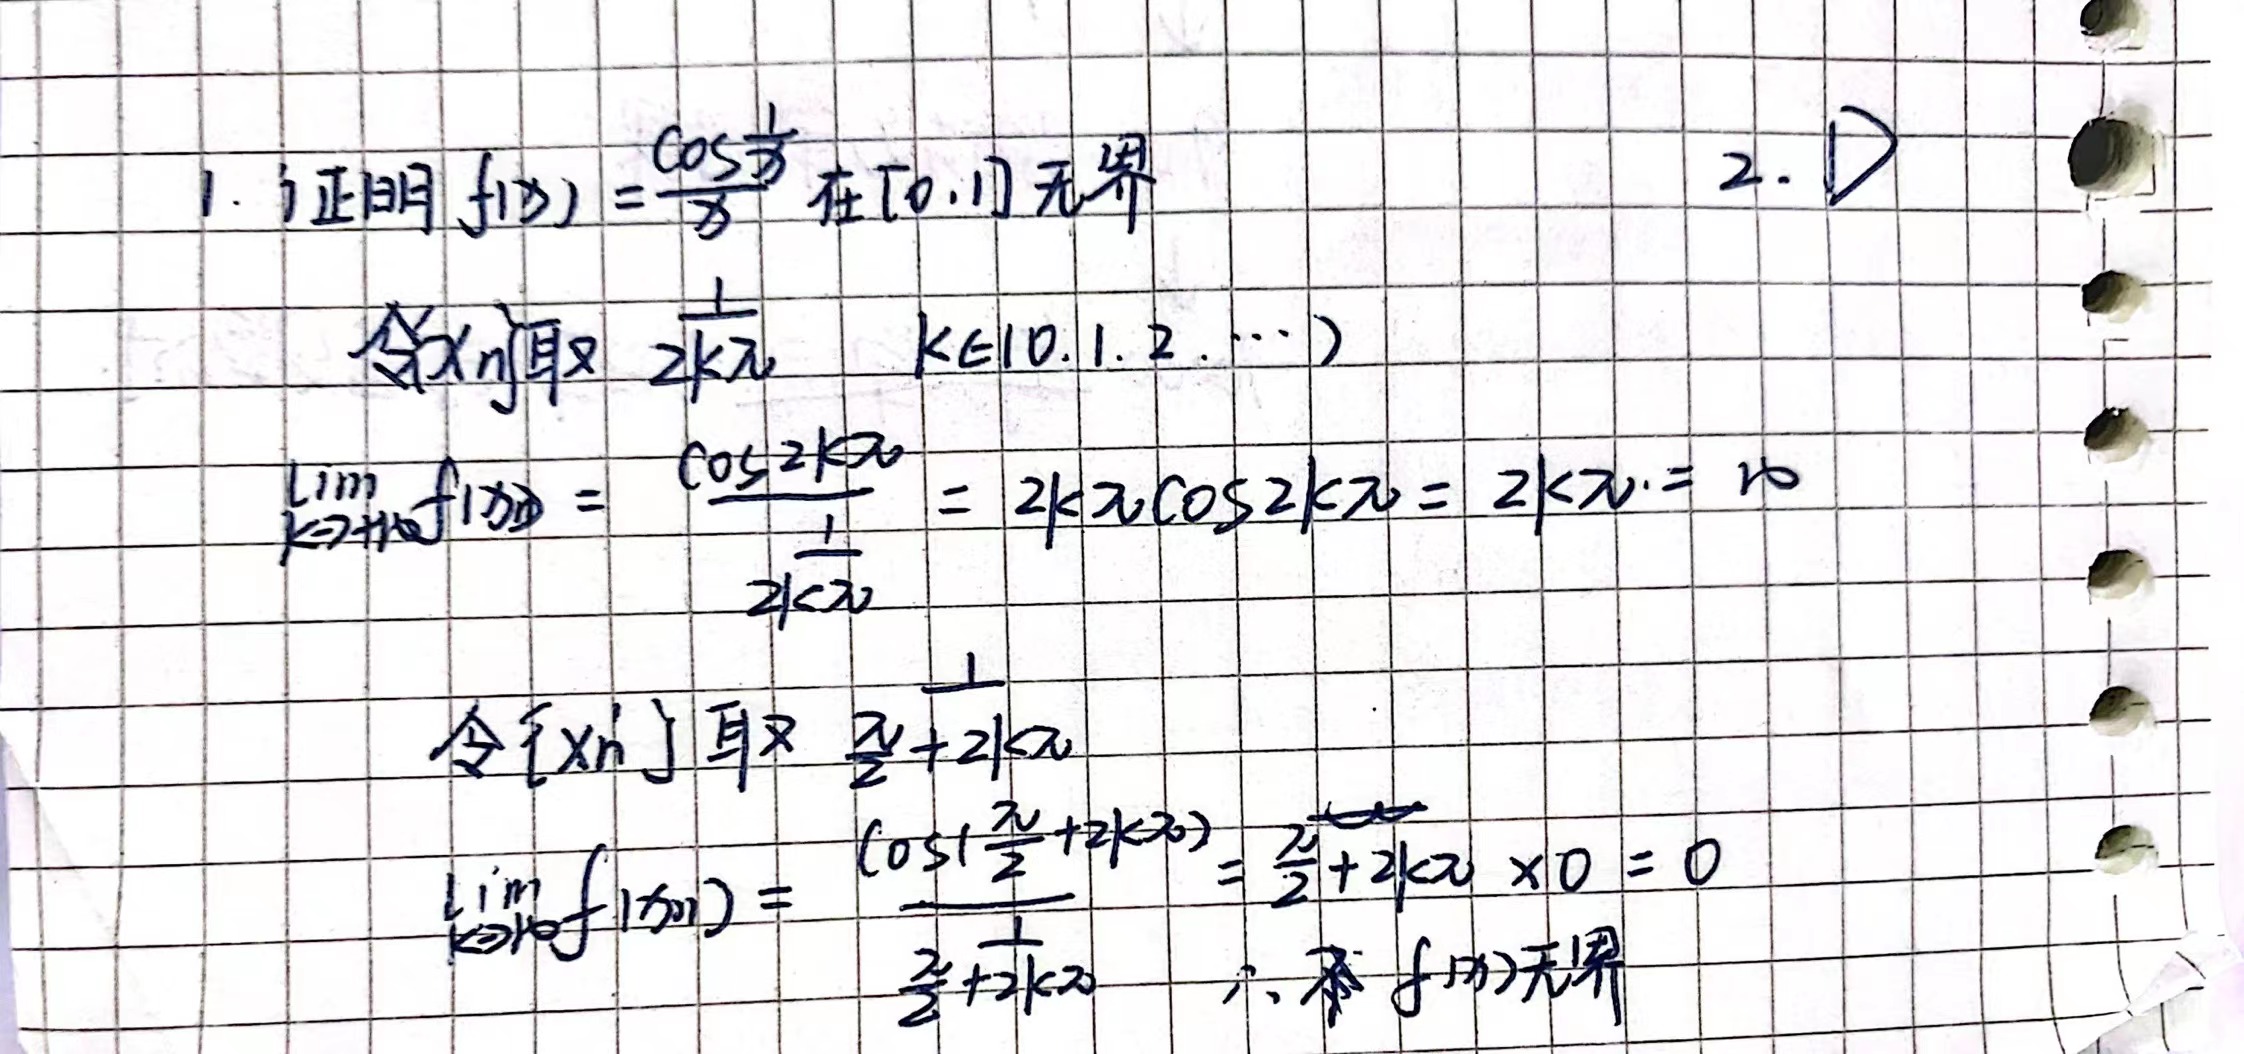 1. 证明 f(x) = cos(1/x)/x 在[0.1]无界
2. D
令{xn}取 1/(2kπ) k∈(0.1.2.…)
lim k→+∞ f(xn) = cos2kπ/(1/(2kπ)) = 2kπcos2kπ = 2kπ = ∞
令{xn'}取 1/(π/2+2kπ)
lim k→+∞ f(xn) = cos(π/2+2kπ)/(1/(π/2+2kπ)) = π/2+2kπ ×0 = 0
∴ f(x)无界